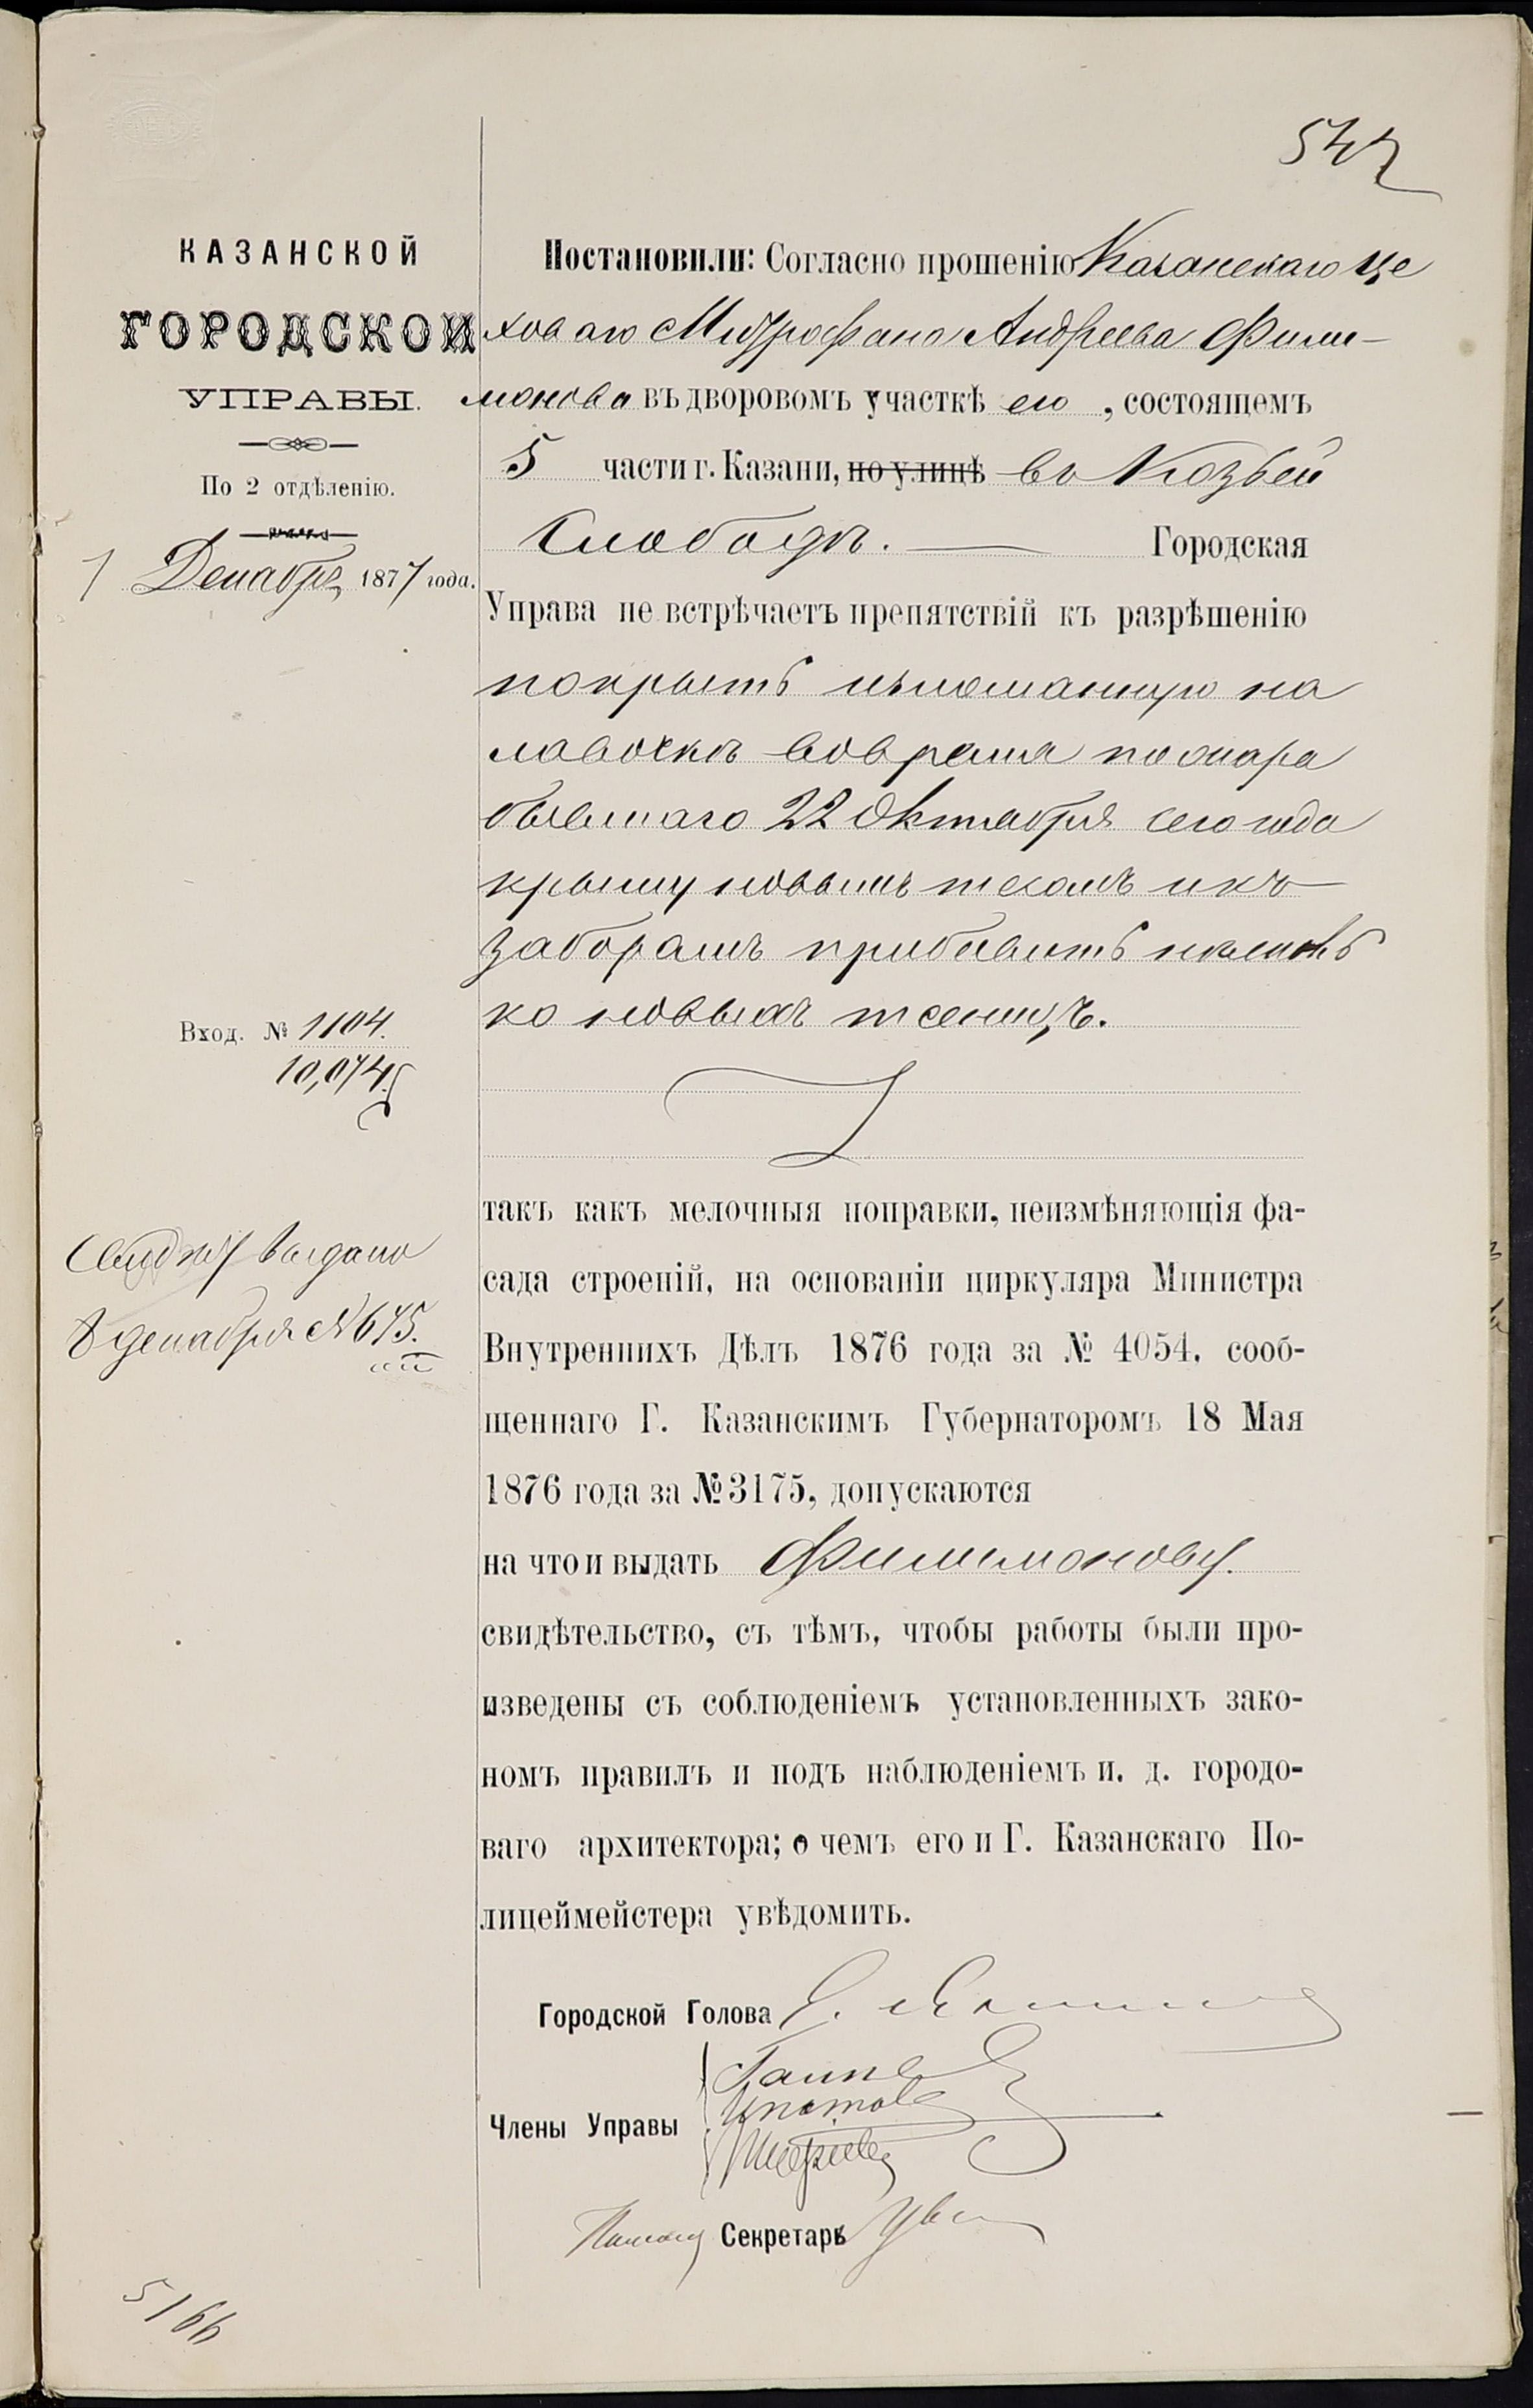 542
КАЗАНСКОЙ
ГОРОДСКОЙ
УПРАВЫ.
По 2 отдѣленію.
7 Декабря 1877 года.
Вход. № 1104.
10,074
Свидѣт. выдано
8 декабря № 675.
Постановили: Согласно прошенію Казанскаго це
ховаго Митрофана Андреева Фили-
монова въ дворовомъ участкѣ его, состоящемъ
5 части г. Казани, по улицѣ въ Козьей
Слободѣ. — Городская
Управа не встрѣчаетъ препятствій къ разрѣшенію
покрыть изломанную на
лавочкѣ вовремя пожара
бывшаго 22 Октября сего года
крышу новымъ тесомъ и къ
заборамъ прибавить нѣсколь
ко новыхъ тесницъ.
такъ какъ мелочныя поправки, неизмѣняющія фа-
сада строеній, на основаніи циркуляра Министра
Внутреннихъ Дѣлъ 1876 года за № 4054, сооб-
щеннаго Г. Казанскимъ Губернаторомъ 18 Мая
1876 года за № 3175, допускаются
на что и выдать Филимонову.
свидѣтельство, съ тѣмъ, чтобы работы были про-
изведены съ соблюденіемъ установленныхъ зако-
номъ правилъ и подъ наблюденіемъ и. д. городо-
ваго архитектора; о чемъ его и Г. Казанскаго По-
лицеймейстера увѣдомить.
Городской Голова
Члены Управы
Ипатов
Секретарь
5166